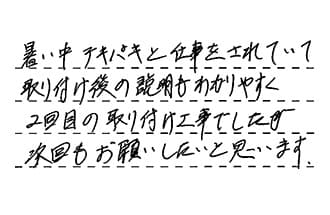 暑い中テキパキと仕事をされていて
取り付け後の説明もわかりやすく
2回目の取り付け工事でしたが
次回もお願いしたいと思います.